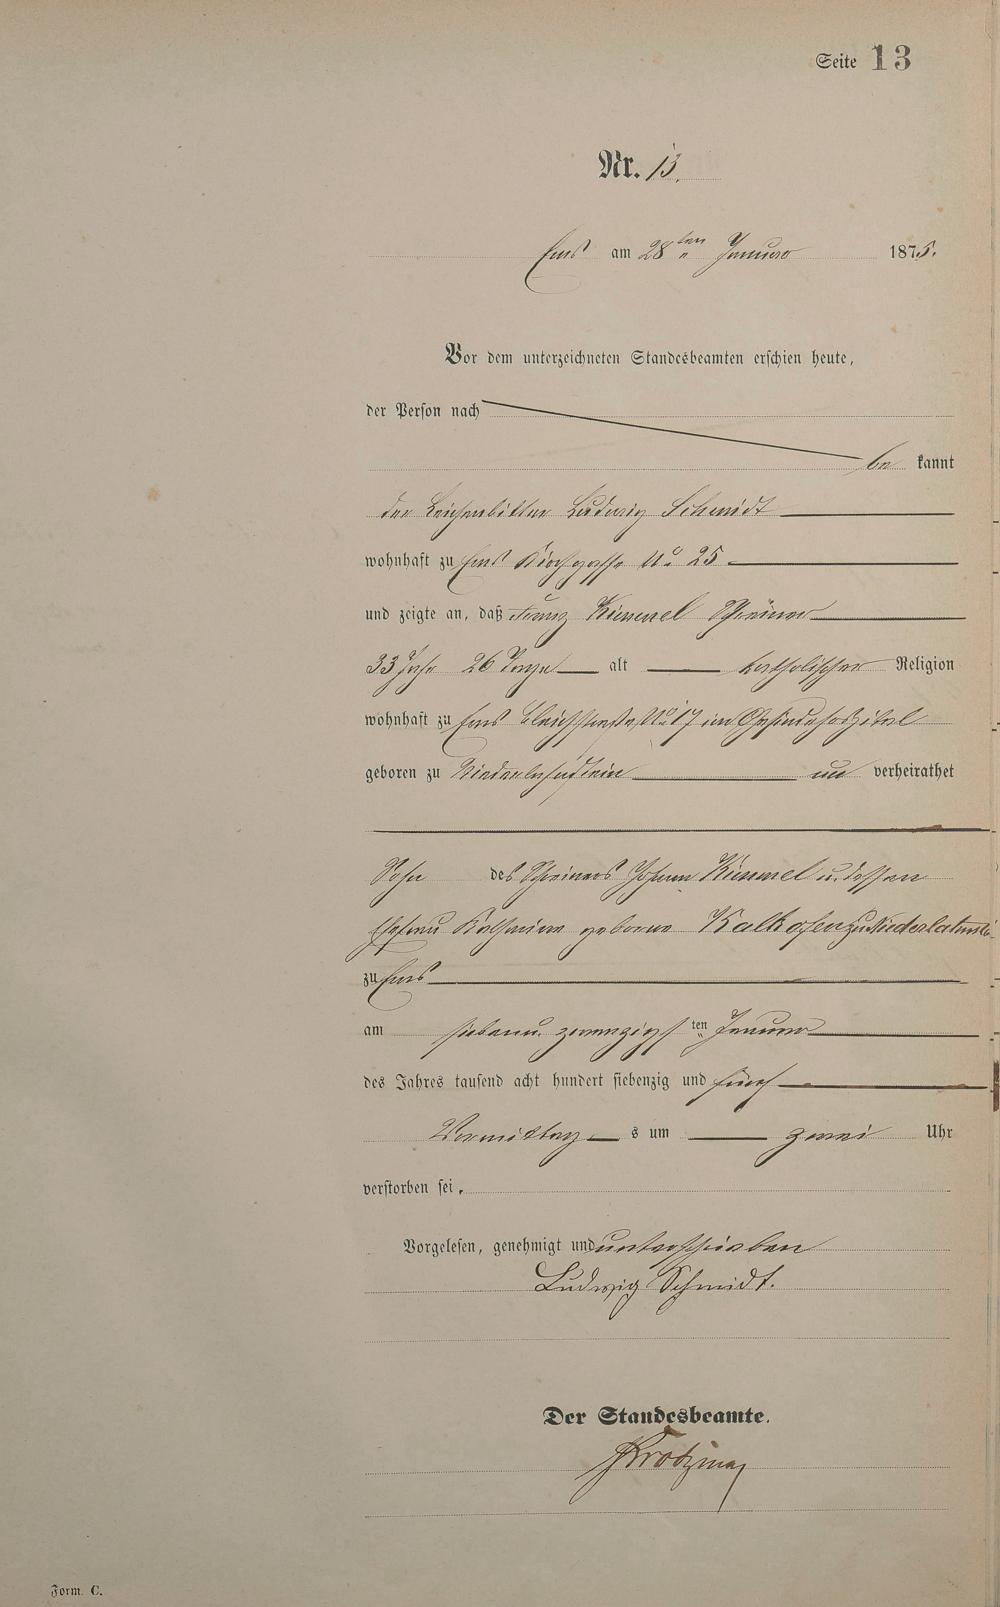 Seite 13
Nr. 13.
Ems am 28ten Januar 1875.
Vor dem unterzeichneten Standesbeamten erschien heute,
der Person nach
be kannt
der Leichenbitter Ludwig Schmidt
wohnhaft zu Ems Kirchgasse No 25
und zeigte an, daß Franz Kimmel Schreiner
33 Jahr 26 Tage alt katholischer Religion
wohnhaft zu Ems No 17 im
geboren zu Niederlahnstein un verheirathet
Sohn des Schreiners Johann Kimmel u. dessen
Ehefrau Katharina geborne Kalkofen zu Niederlahnstein
zu Ems
am siebenu. zwanzigsten Januar
des Jahres tausend acht hundert siebenzig und fünf
Vormittag s um zwei Uhr
verstorben sei.
Vorgelesen, genehmigt und unterschrieben
Ludwig Schmidt.
Der Standesbeamte.
Form. C.